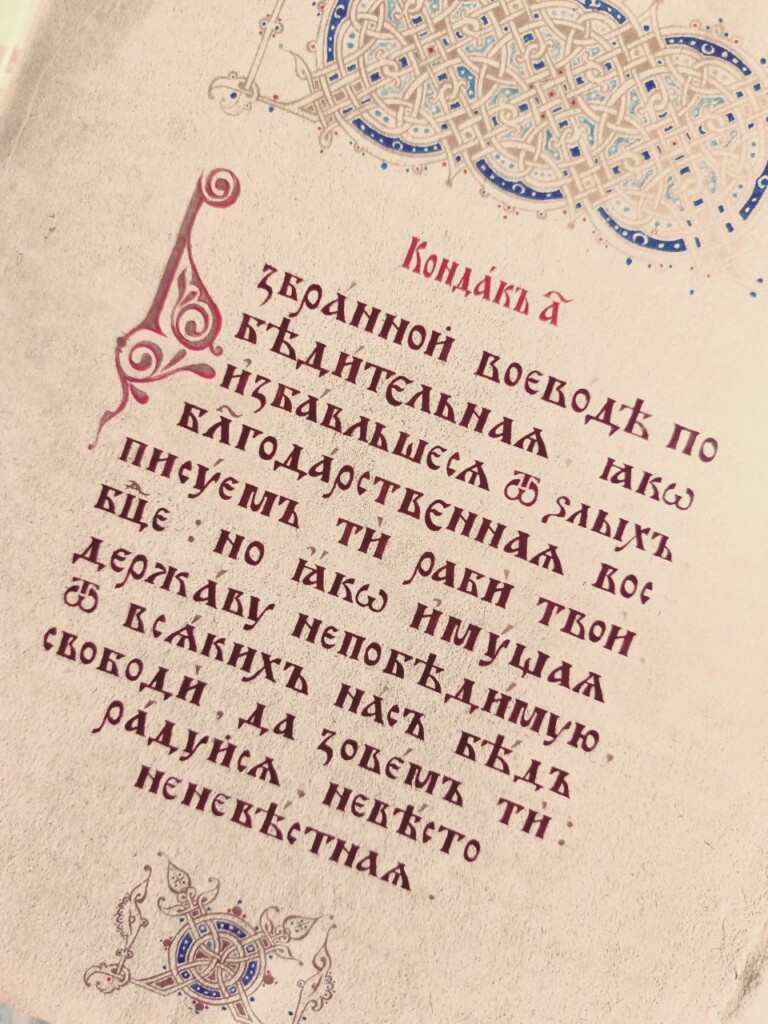 Конда́къ а҃
Избра́нной воеводѣ по
бѣди́тельная ꙗкѡ
и҆зба́вльшеся ѿ ѕлыхъ
бл҃года́рственная вос
пису́емъ ти̇ раби̇ твои̇
бц҃е : но ꙗ҆́кѡ и҆му́щая
держа́ву непобѣди́мую .
ѿ вся́кихъ на́съ бѣ́дъ
свободи̇ . да зове́мъ ти̇ :
ра́дуйся . невѣ́сто
неневѣ́стная .